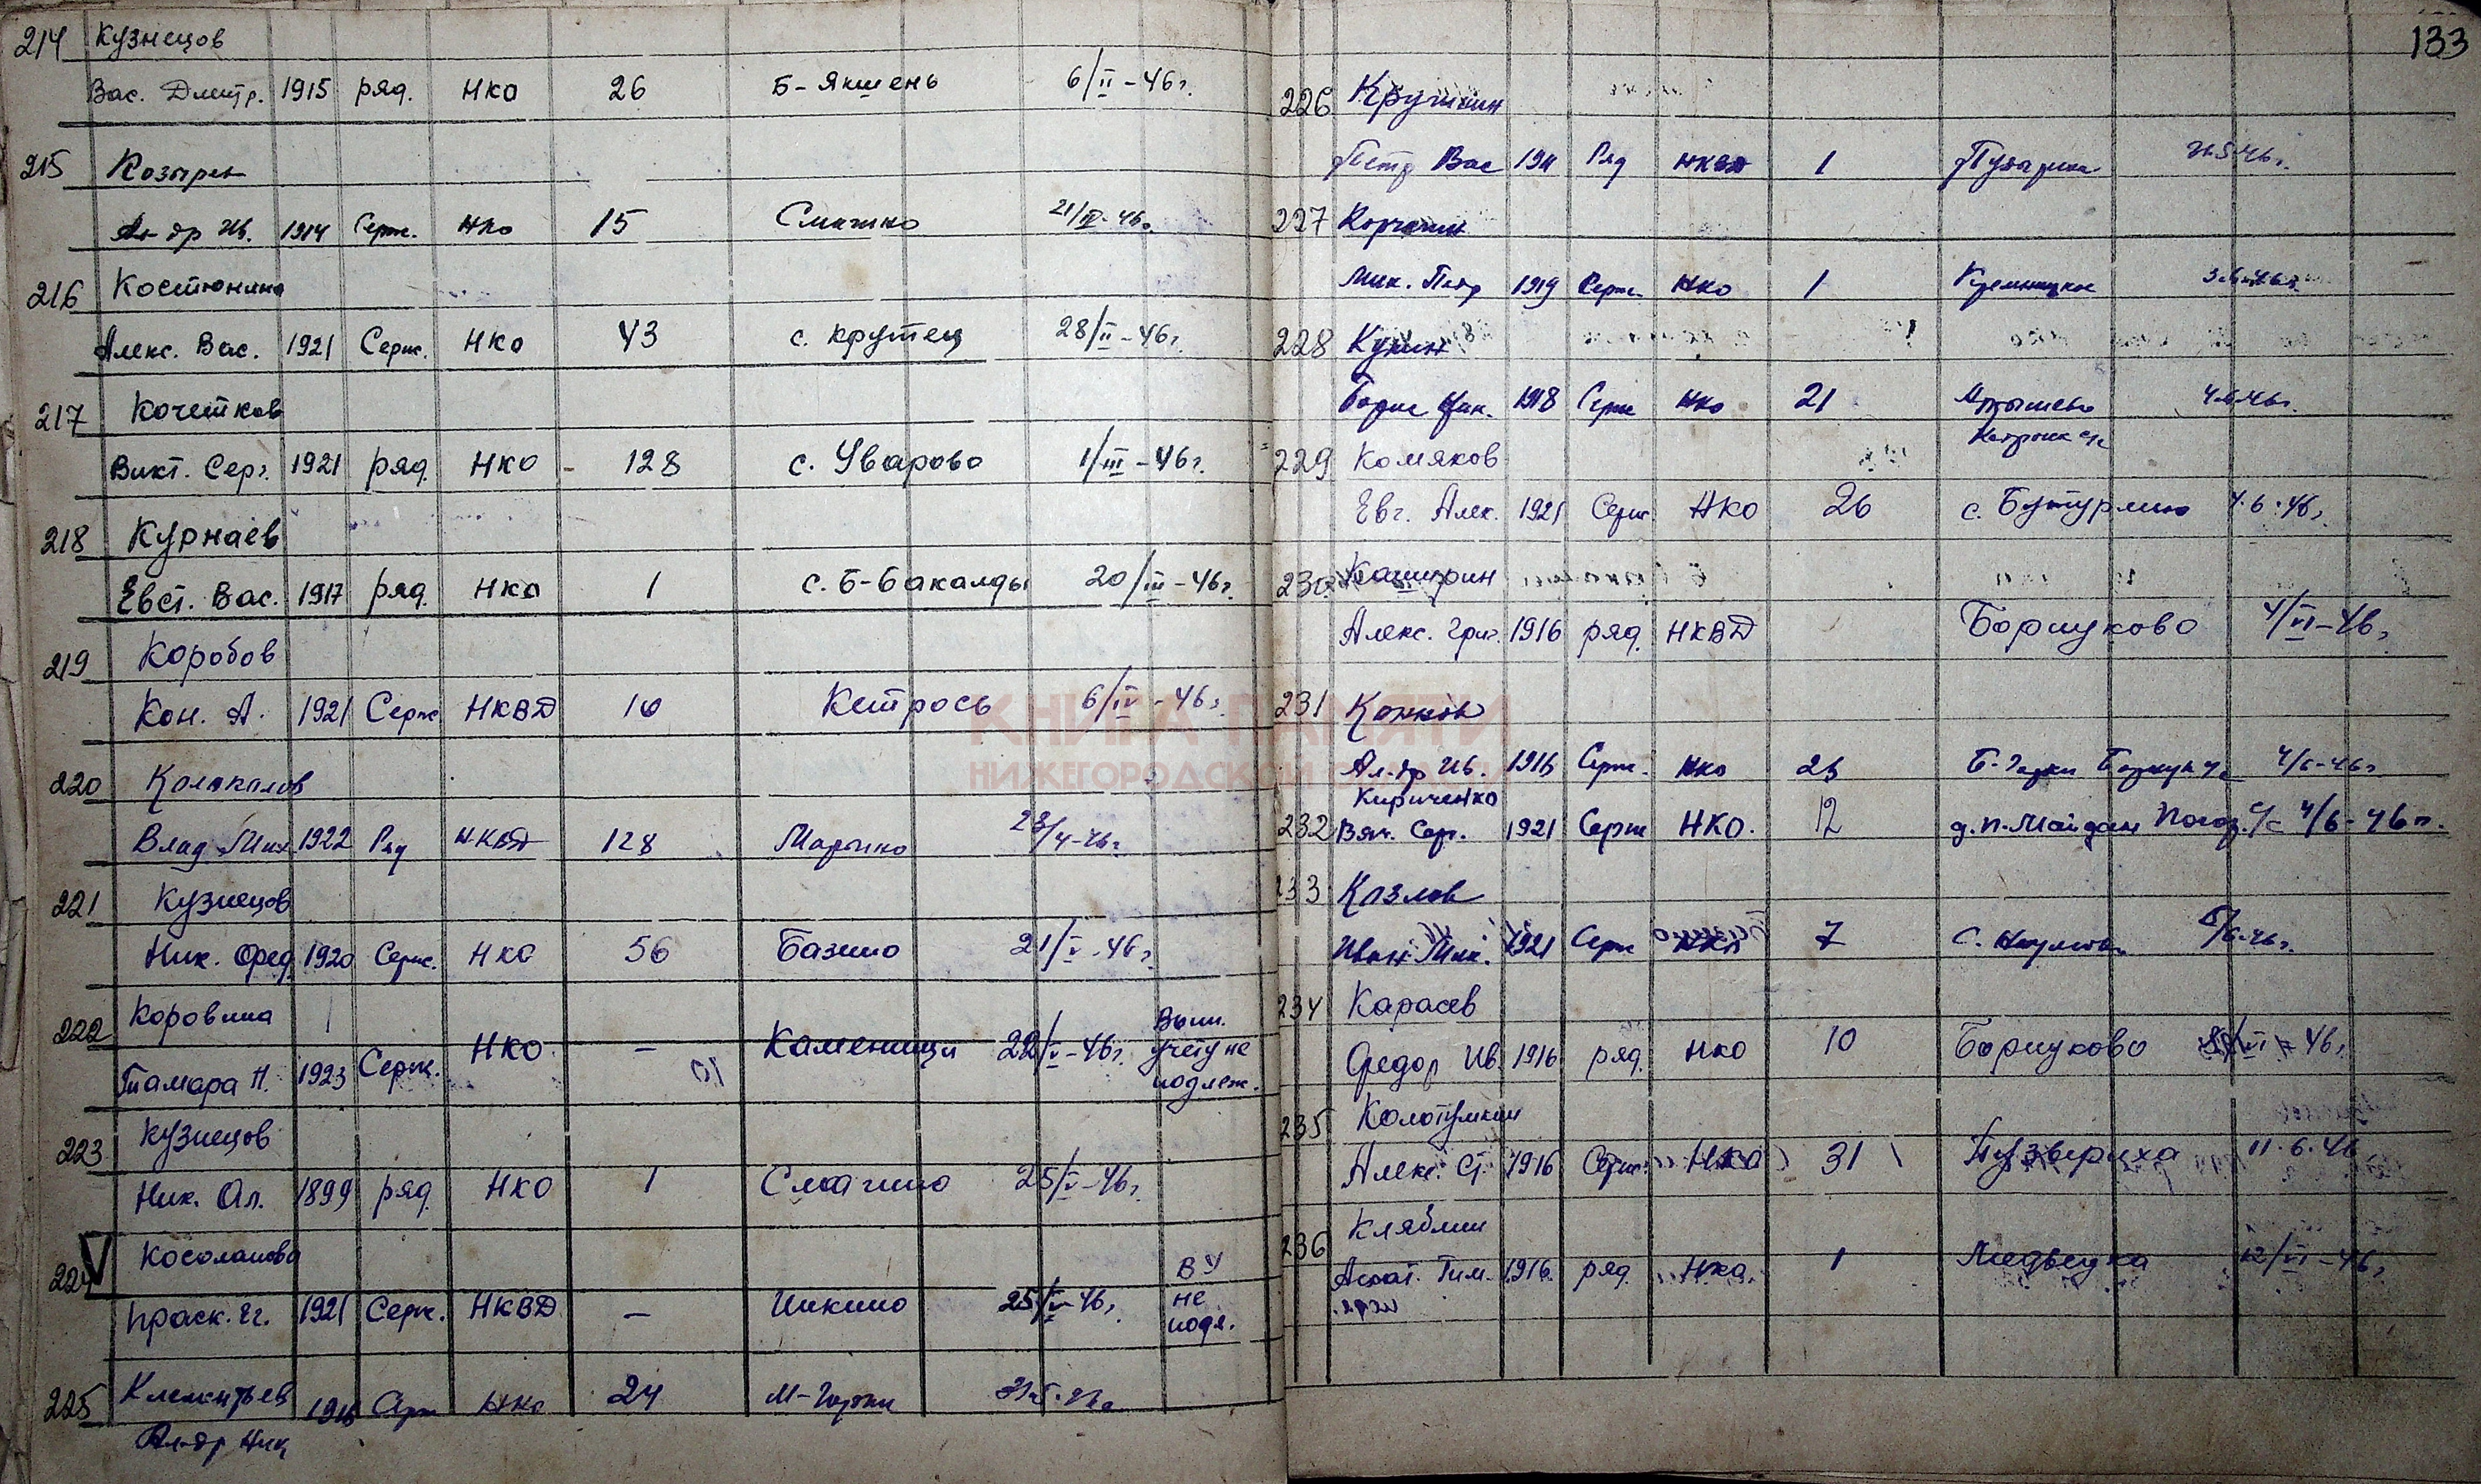 214 Кузнецов
Вас. Дмитр. 1915 ряд. НКО 26 Б-Якшень 6/II-46г.
215 Козырев
Ал-др Ив. 1914 Серж. НКО 15 21/IV-46г.
216 Костюнина
Алекс. Вас. 1921 Серж. НКО 43 с. Крутец 28/II-46г.
217 Кочетков
Викт. Серг. 1921 ряд. НКО - 128 с. Уварово 1/III-46г.
218 Курнаев
Евст. Вас. 1917 ряд. НКО 1 с. Б-Бакалды 20/III-46г.
219 Коробов
Кон. А. 1921 Серж НКВД 10 Кетрось 6/IV-46г.
220 Колоколов
Влад. Мих. 1922 Ряд НКВД 128 23/4-46г.
221 Кузнецов
Ник. Фед. 1920 Серж. НКО 56 Базино 21/V-46г.
222 Коровина
Тамара П. 1923 Серж. НКО - Каменищи 22/V-46г. Воин. учету не подлеж.
223 Кузнецов
Ник. Ал. 1899 ряд. НКО 1 Смагино 25/V-46г.
224 Косолапова
Праск. Ег. 1921 Серж. НКВД - Инкино 25/V-46г. ВУ не подл.
225 Клементьев 1916 Серж НКО 24 М-Горки
Ал-др Ник
133
226 Крушин
Петр Вас 1911 Ряд НКВД 1
227 Корчагин
Мих. Петр 1919 Серж. НКО 1
228 Кунин
Борис Ник. 1918 Серж НКО 21 4.6.46г.
229 Комяков
Евг. Алек. 1921 Серж НКО 26 с. Бутурлино 4.6.46г.
230 Каширин
Алекс. Григ. 1916 ряд. НКВД Борнуково 4/VI-46г
231 Конков
Ал-др Ив. 1916 Серж. НКО 23 Б-Горки 4/6-46г
Кириченко
232 Вяч. Серг. 1921 Серж НКО. 12 д. П-Майдан Погоз. с/с 4/6-46г.
233 Козлов
Иван Мих. 1921 Серж НКО 7 5/6-46г.
234 Карасев
Федор Ив. 1916 ряд. НКО 10 Борнуково /VI-46г
235 Колотушкин
Алекс. Ст. 1916 Серж. НКО 31 Пузвериха 11.6.46
236 Кляблин
Анат. Тим. 1916 ряд. НКО 1 Медведка 12/VI-46г
КНИГА ПАМЯТИ
НИЖЕГОРОДСКОЙ ОБЛАСТИ